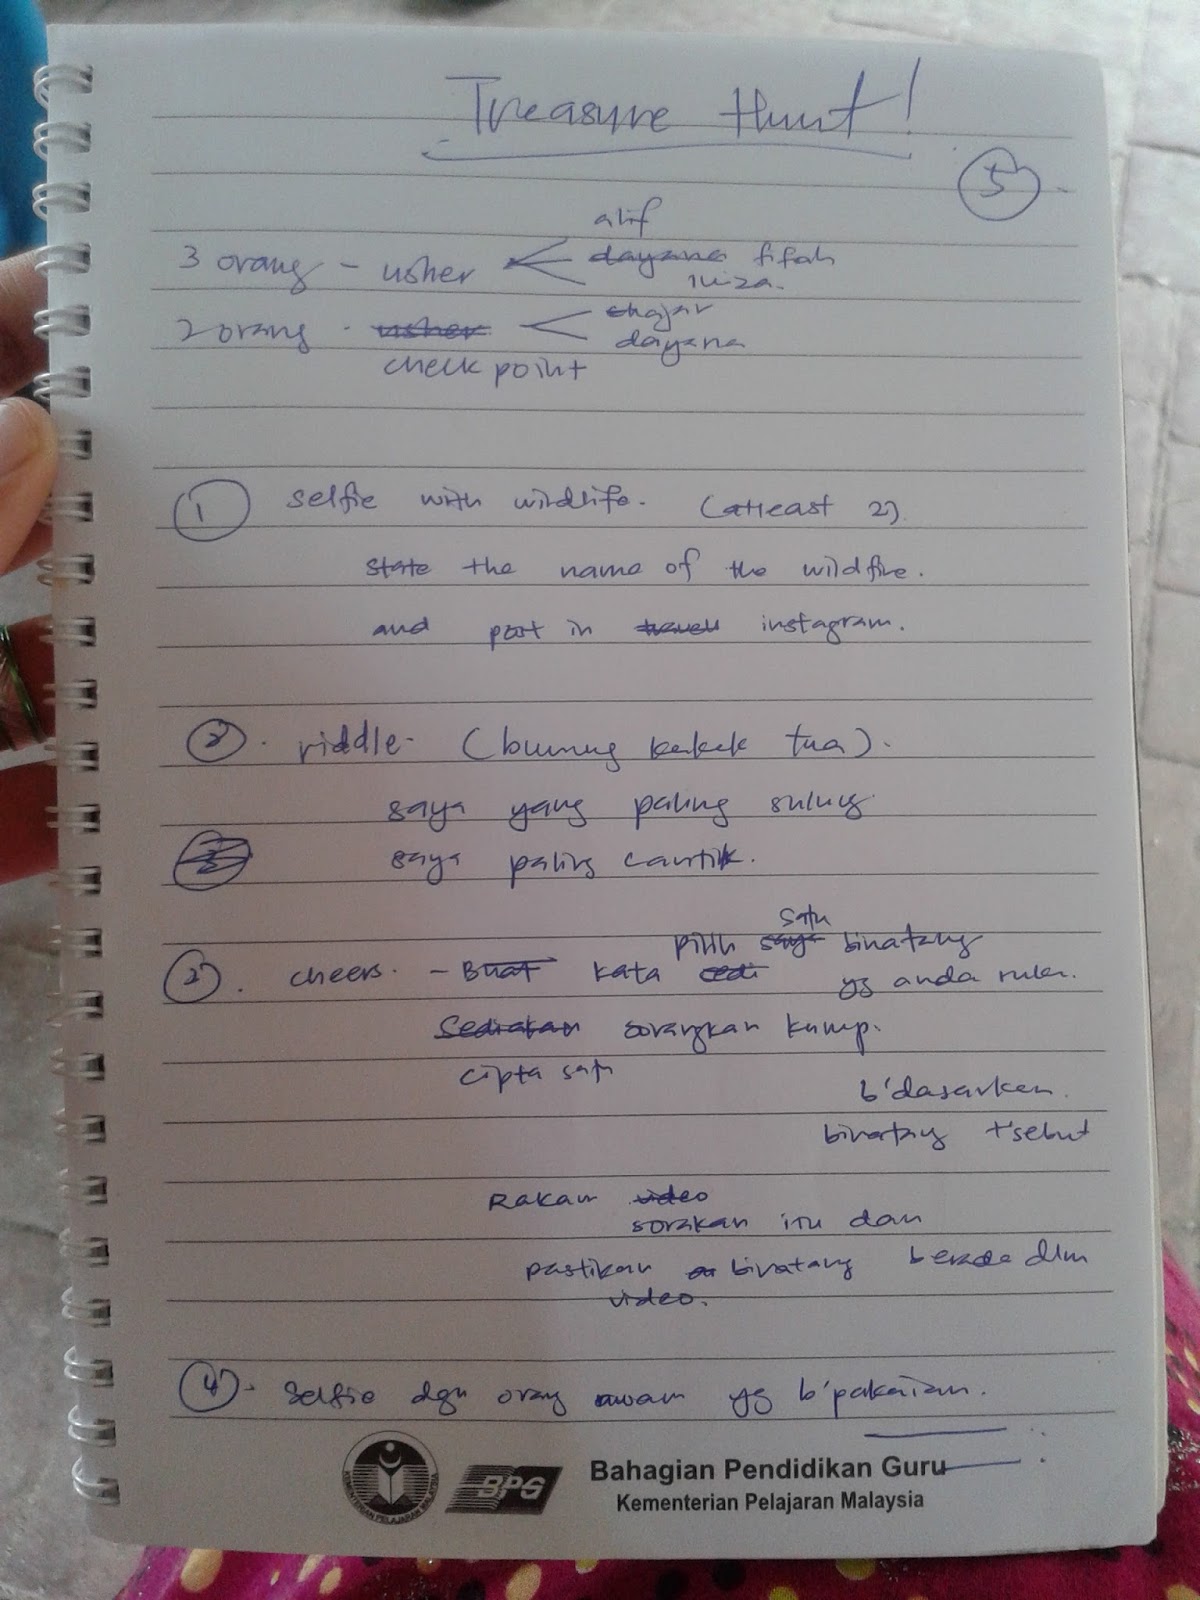 Treasure Hunt!
5
alif
3 orang - usher dayana fifah
niza.
2 orang - usher hajar
dayana
check point
1 selfie with wildlife. (atleast 2).
state the name of the wildfire.
and post in instagram.
2. riddle - (burung kakak tua).
saya yang paling sulung
saya paling cantik.
satu
pilih saya binatang
3. cheers. - Buat kata yg anda suka.
Sediakan sorangkan kump.
cipta satu
b'dasarkan
binatang t'sebut
Rakam video
sorakan itu dan
pastikan binatang berada dlm
video.
4. Selfie dgn orang awam yg b'pakaian.
KEMENTERIAN PELAJARAN MALAYSIA
BPG
Bahagian Pendidikan Guru
Kementerian Pelajaran Malaysia